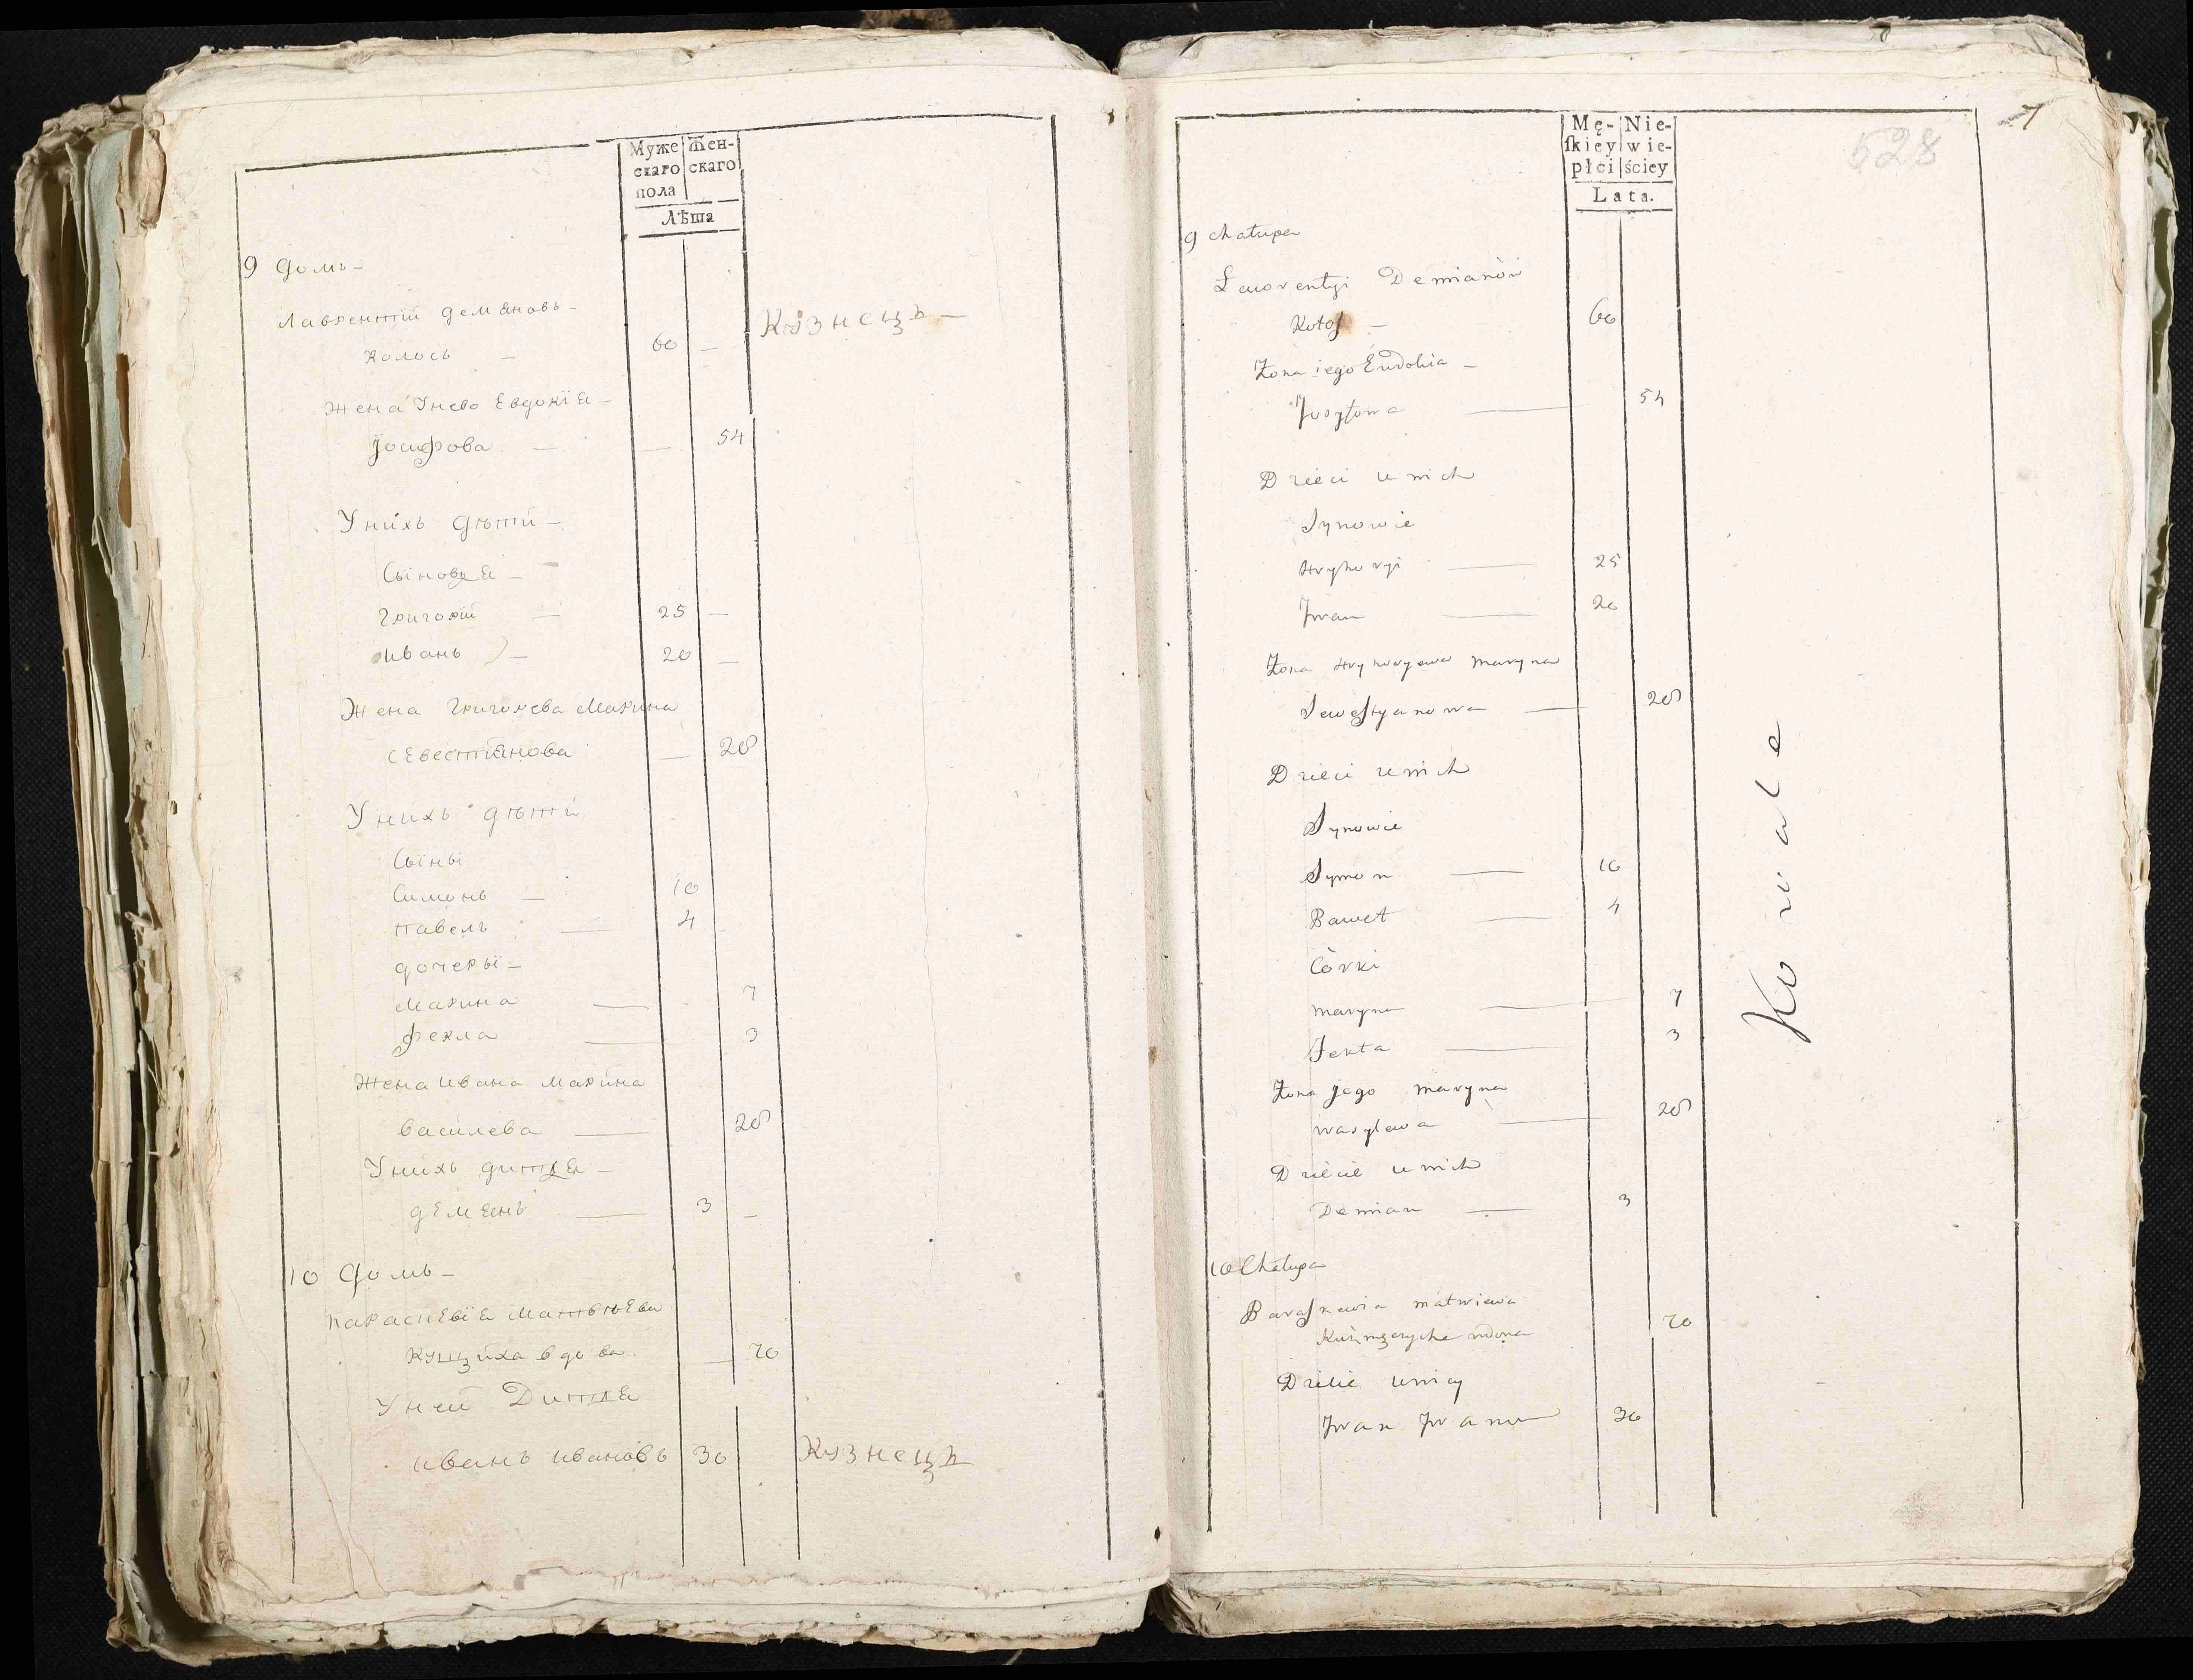 Муже Жен-
скаго скаго
пола
Лѣта
9 домъ -
Лаврентій демяновъ -
Колосъ - 60 -
Кузнецъ -
Жена Унево Евдокія -
Йосифова - - 54
Унихъ дѣти -
Сыновья -
Григорій - 25 -
Иванъ - 20 -
Жена Григорева Марина
Севестіянова - 28
Унихъ дѣти
Сыны
Симонъ - 10
Павелъ - 4
дочеры -
Марина - - 7
Фекла - 3
Жена Ивана Марина
Василева - 28
Унихъ дитя -
Демянъ - 3 -
10 домъ -
Параскевія Матвѣева
вдова - 70
Уней Дитя
Иванъ Ивановъ 30 Кузнецъ
7
Mę- Nie-
ſkiey wie-
płci ściey
Lata.
528
9 chałupa
Ławrentyi Demianów
Kołos - 60
Żona iego Eudokia -
Jusyfowa - 54
Dzieci u nich
Synowie
Hryhoryi - 25
Jwan - 20
Żona Hryhoryewa Maryna
Sewestyanowa - 28
Dzieci u nich
Synowie
Symon - 10
Baweł - 4
Córki
Maryna - 7
Fekła - 3
Żona Jego Maryna
Wasylewa - 28
Dziécie u nich
Demian - 3
Kowale
10 Chałupa
Baraskewia Matwiewa
wdowa 70
Dziécie u niey
Jwan Jwanow 30